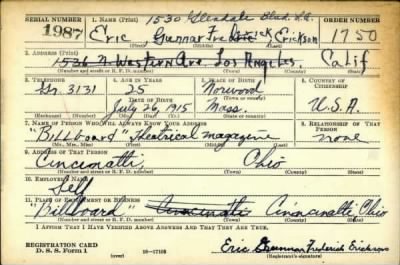 SERIAL NUMBER 1. NAME (Print) 1530 Glendale Blvd. L.A. ORDER NUMBER
1987 Eric Gunnar Frederick Erickson 1750
(First) (Middle) (Last)
2. ADDRESS (Print)
1536 N Western Ave. Los Angeles. Calif
(Number and street or R. F. D. number) (Town) (County) (State)
3. TELEPHONE 4. AGE IN YEARS 5. PLACE OF BIRTH 6. COUNTRY OF CITIZENSHIP
3131 25 Norwood
DATE OF BIRTH
July 26, 1915 Mass. U.S.A.
(Exchange) (Number) (Mo.) (Day) (Yr.) (State or country)
7. NAME OF PERSON WHO WILL ALWAYS KNOW YOUR ADDRESS 8. RELATIONSHIP OF THAT PERSON
"Billboard" Theatrical magazine none
(Mr., Mrs., Miss) (First) (Middle) (Last)
9. ADDRESS OF THAT PERSON
Cincinatti, Ohio
(Number and street or R. F. D. number) (Town) (County) (State)
10. EMPLOYER'S NAME
Self
11. PLACE OF EMPLOYMENT OR BUSINESS
"Billboard" Cincinatti Cincinatti Ohio
(Number and street or R. F. D. number) (Town) (County) (State)
I AFFIRM THAT I HAVE VERIFIED ABOVE ANSWERS AND THAT THEY ARE TRUE.
REGISTRATION CARD
D. S. S. Form 1 (over) 16—17105 Eric Gunnar Frederick Erickson
(Registrant's signature)